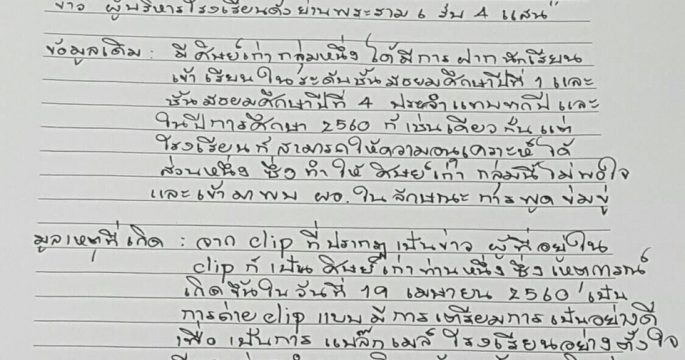 ข่าว ผู้บริหารโรงเรียนดังย่านพระราม 6 รับ 4 แสน"
ข้อมูลเดิม : มีศิษย์เก่ากลุ่มหนึ่ง ได้มีการฝากนักเรียน
เข้าเรียนในระดับชั้นมัธยมศึกษาปีที่ 1 และ
ชั้นมัธยมศึกษาปีที่ 4 ประจำแทบทุกปี และ
ในปีการศึกษา 2560 ก็เช่นเดียวกันแต่
โรงเรียนก็สามารถให้ความอนุเคราะห์ได้
ส่วนหนึ่ง ซึ่งทำให้ศิษย์เก่ากลุ่มนี้ไม่พอใจ
และเข้ามาพบ ผอ. ในลักษณะการพูดข่มขู่
มูลเหตุที่เกิด : จาก clip ที่ปรากฏเป็นข่าว ผู้ที่อยู่ใน
clip ก็เป็นศิษย์เก่าท่านหนึ่ง ซึ่งเหตุการณ์
เกิดขึ้นในวันที่ 19 เมษายน 2560 เป็น
การถ่าย clip แบบมีการเตรียมการเป็นอย่างดี
เพื่อเป็นการแบล็กเมล์โรงเรียนอย่างตั้งใจ